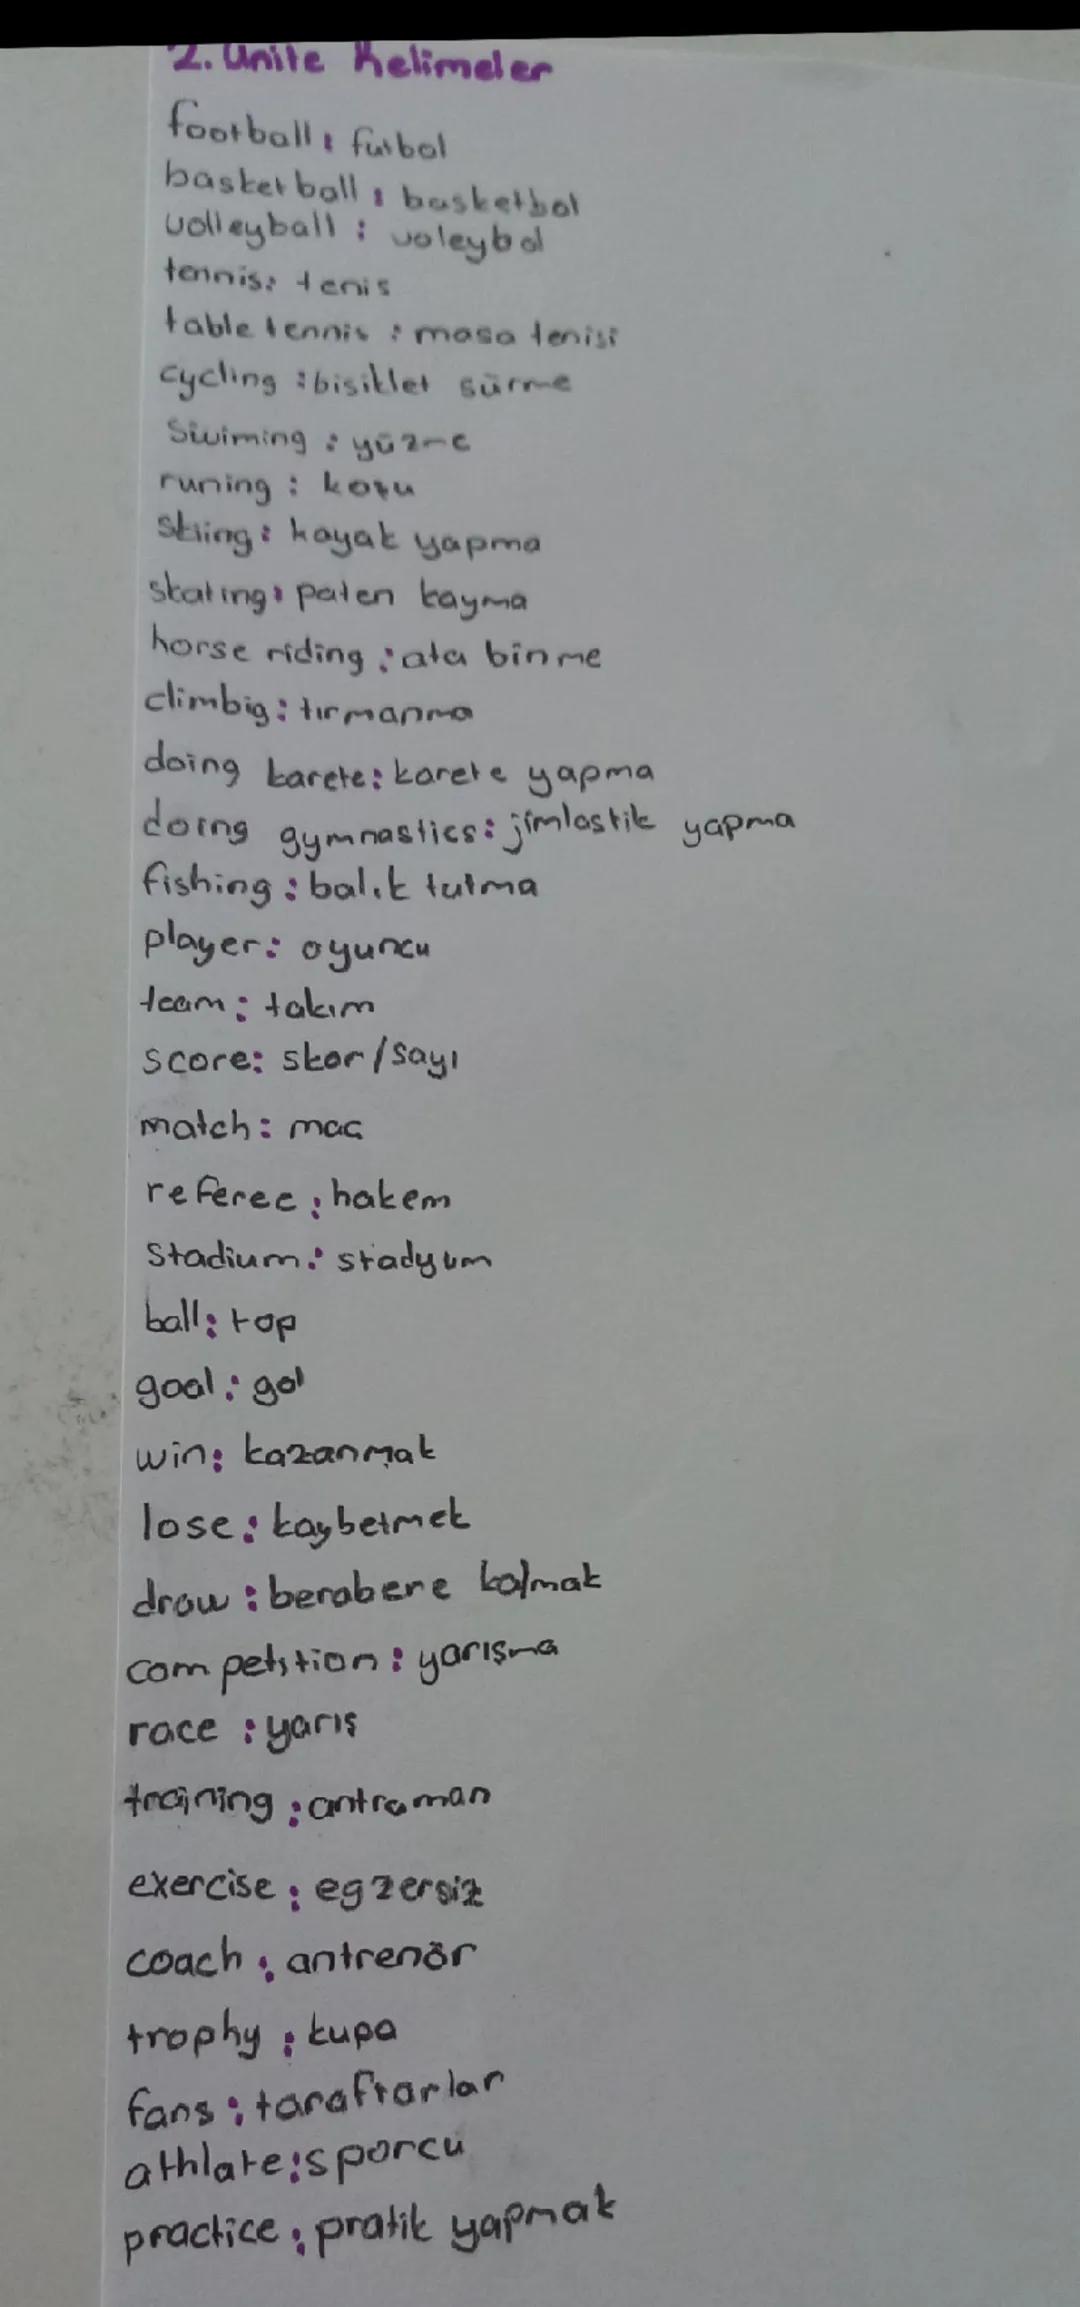 2. Ünite Kelimeler
football: futbol
basketball: basketbol
volleyball: voleybol
tennis: tenis
table tennis: masa tenisi
cycling: bisiklet sürme
Swiming: yüzme
runing: koşu
skiing: kayak yapma
skating: paten kayma
horse riding: ata binme
climbig: tırmanma
doing karete: karete yapma
doing gymnastics: jimlastik yapma
fishing: balık tutma
player: oyuncu
team: takım
score: skor/sayı
match: maç
referee: hakem
Stadium: stadyum
ball: top
goal: gol
win: kazanmak
lose: kaybetmek
draw: berabere kalmak
competition: yarışma
race: yarış
training: antraman
exercise: egzersiz
coach: antrenör
trophy: kupa
fans: taraftarlar
athlate: sporcu
practice: pratik yapmak